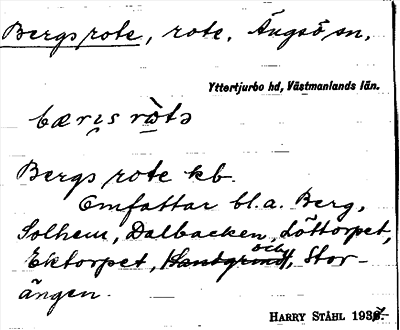 Bergs rote, rote. Ängsö sn,
Yttertjurbo hd, Västmanlands län.
bæris ròtə
Bergs rote kb.
Omfattar bl. a. Berg,
Solhem, Dalbacken, Löttorpet,
Ektorpet, och Stor-
ängen.
HARRY STÅHL 193